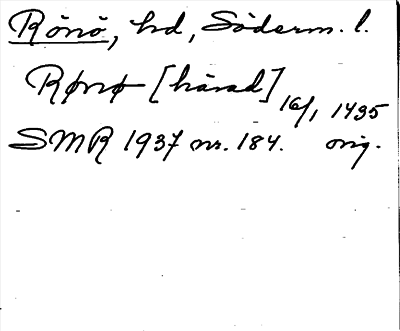 Rönö, hd, Söderm. l.
Rønø [härad] 16/1 1495
SMR 1937 nr. 184. orig.